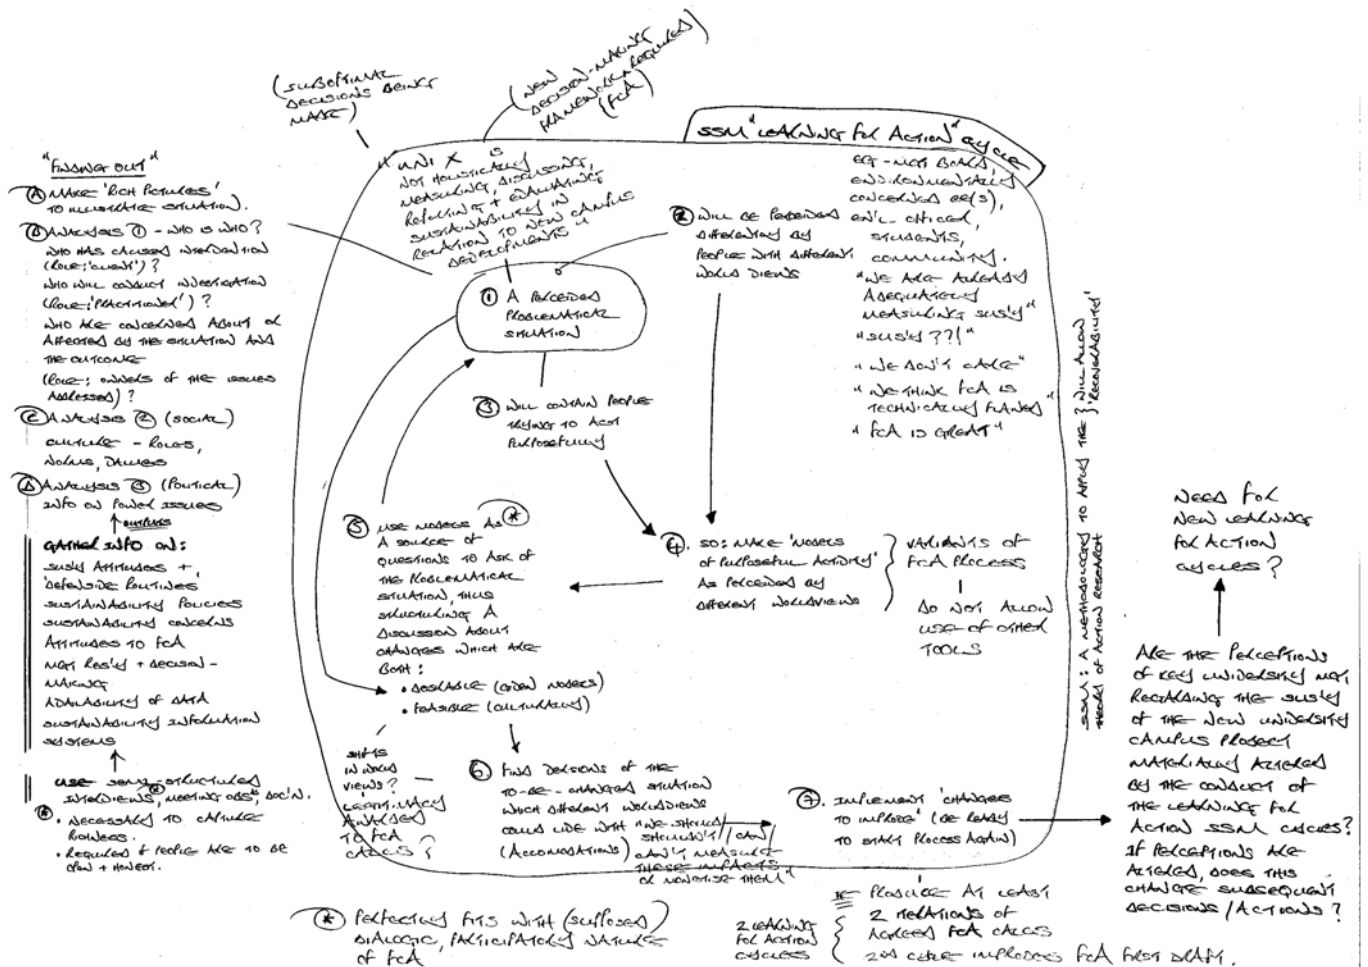 (SUBOPTIMAL
DECISIONS BEING
MADE)
(NEW
DECISION-MAKING
FRAMEWORK REQUIRED)
(FCA)
SSM "LEARNING FOR ACTION" CYCLE
"FINDING OUT"
Ⓐ MAKE 'RICH PICTURES'
TO ILLUSTRATE SITUATION.
Ⓑ ANALYSIS ① - WHO IS WHO?
WHO HAS CAUSED INTERVENTION
(ROLE; 'CLIENT')?
WHO WILL CONDUCT INVESTIGATION
(ROLE; 'PRACTITIONER')?
WHO ARE CONCERNED ABOUT OR
AFFECTED BY THE SITUATION AND
THE OUTCOME
(ROLE; OWNERS OF THE ISSUES
ADDRESSED)?
Ⓒ ANALYSIS ② (SOCIAL)
CULTURE - ROLES,
NORMS, VALUES
Ⓓ ANALYSIS ③ (POLITICAL)
INFO ON POWER ISSUES
↑ OUTPUTS
GATHER INFO ON:
SUSLY ATTITUDES +
'DEFENSIVE ROUTINES'
SUSTAINABILITY POLICIES
SUSTAINABILITY CONCERNS
ATTITUDES TO FCA
MGT RES'LY + DECISION-
MAKING
AVAILABILITY OF DATA
SUSTAINABILITY INFORMATION
SYSTEMS
USE SEMI-STRUCTURED
INTERVIEWS, MEETING OBS, DOC'N.
• NECESSARY TO CAPTURE
RICHNESS.
• REQUIRED IF PEOPLE ARE TO BE
OPEN + HONEST.
"UNI X IS
NOT HOLISTICALLY
MEASURING, DISCUSSING,
REPORTING + EVALUATING
SUSTAINABILITY IN
RELATION TO NEW CAMPUS
DEVELOPMENTS"
① A PERCEIVED
PROBLEMATICAL
SITUATION
② WILL BE PERCEIVED
DIFFERENTLY BY
PEOPLE WITH DIFFERENT
WORLD VIEWS
EG - MGT BOARD,
ENVIRONMENTALLY
CONCERNED EE(S),
EN'L OFFICER,
STUDENTS,
COMMUNITY.
"WE ARE ALREADY
ADEQUATELY
MEASURING SUS'LY"
"SUS'LY ??!"
"WE DON'T CARE"
"WE THINK FCA IS
TECHNICALLY FLAWED"
"FCA IS GREAT"
③ WILL CONTAIN PEOPLE
TRYING TO ACT
PURPOSEFULLY
④. SO: MAKE 'MODELS
OF PURPOSEFUL ACTIVITY'
AS PERCEIVED BY
DIFFERENT WORLDVIEWS
VARIANTS OF
FCA PROCESS
DO NOT ALLOW
USE OF OTHER
TOOLS
⑤ USE MODELS AS *
A SOURCE OF
QUESTIONS TO ASK OF
THE PROBLEMATICAL
SITUATION, THUS
STRUCTURING A
DISCUSSION ABOUT
CHANGES WHICH ARE
BOTH:
• DESIRABLE (GIVEN MODELS)
• FEASIBLE (CULTURALLY)
SHIFTS
IN WORLD
VIEWS?
LEGITIMACY
AWARDED
TO FCA
CALCS?
⑥. FIND VERSIONS OF THE
TO-BE-CHANGED SITUATION
WHICH DIFFERENT WORLDVIEWS
COULD LIVE WITH
(ACCOMODATIONS)
"WE SHOULD/
SHOULDN'T/CAN/
CAN'T MEASURE
THESE IMPACTS
OR MONETISE THEM"
⑦. IMPLEMENT 'CHANGES
TO IMPROVE' (BE READY
TO START PROCESS AGAIN)
SSM: A METHODOLOGY TO APPLY THE
THEORY OF ACTION RESEARCH
WILL ALLOW
'RECOVERABILITY'
NEED FOR
NEW LEARNING
FOR ACTION
CYCLES?
ARE THE PERCEPTIONS
OF KEY UNIVERSITY MGT,
REGARDING THE SUSLY
OF THE NEW UNIVERSITY
CAMPUS PROJECT
MATERIALLY ALTERED
BY THE CONDUCT OF
THE LEARNING FOR
ACTION SSM CYCLES?
IF PERCEPTIONS ARE
ALTERED, DOES THIS
CHANGE SUBSEQUENT
DECISIONS/ACTIONS?
* PERFECTLY FITS WITH (SUPPOSED)
DIALOGIC, PARTICIPATORY NATURE
OF FCA
2 LEARNING
FOR ACTION
CYCLES
IE PRODUCE AT LEAST
2 ITERATIONS OF
AGREED FCA CALCS
2ND CYCLE IMPROVES FCA FIRST DRAFT.